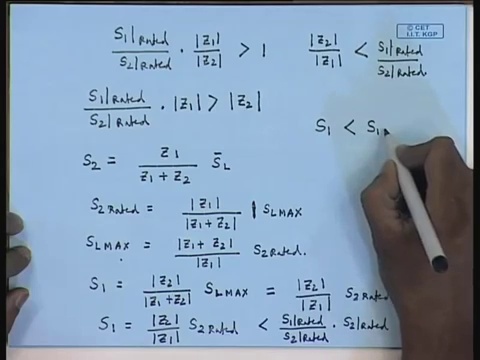 © CET
I.I.T. KGP
S1|Rated / S2|Rated · |Z1| / |Z2| > 1
|Z2| / |Z1| < S1|Rated / S2|Rated
S1|Rated / S2|Rated · |Z1| > |Z2|
S1 < S1
S2 = Z1 / Z1 + Z2 S̄L
S2 Rated = |Z1| / |Z1 + Z2| | SLMAX
SLMAX = |Z1 + Z2| / |Z1| S2 Rated.
S1 = |Z2| / |Z1 + Z2| SLMAX = |Z2| / |Z1| S2 Rated
S1 = |Z2| / |Z1| S2 Rated < S1|Rated / S2|Rated · S2|Rated